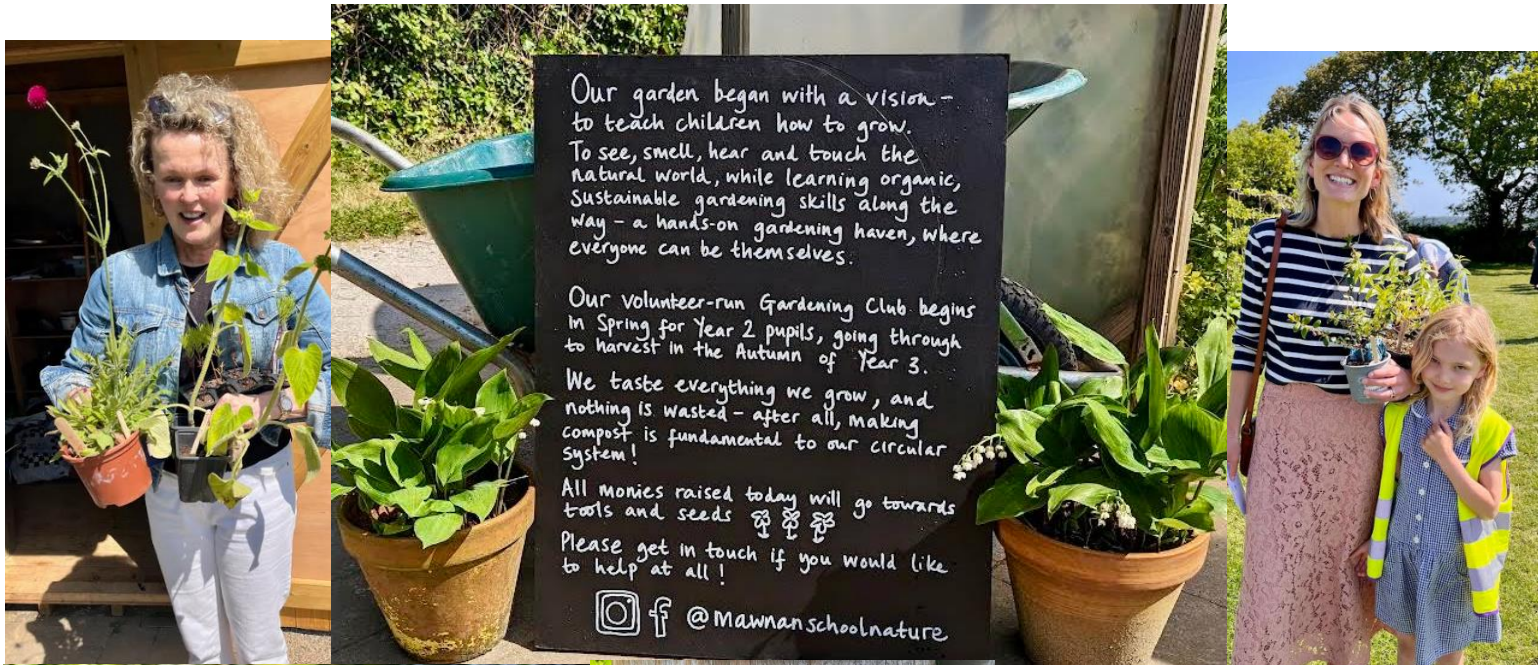 Our garden began with a vision -
to teach children how to grow.
To see, smell, hear and touch the
natural world, while learning organic,
Sustainable gardening skills along the
way - a hands-on gardening haven, where
everyone can be themselves.
Our volunteer-run Gardening Club begins
in Spring for Year 2 pupils, going through
to harvest in the Autumn of Year 3.
We taste everything we grow, and
nothing is wasted - after all, making
compost is fundamental to our circular
system!
All monies raised today will go towards
tools and seeds
Please get in touch if you would like
to help at all!
f @mawnanschoolnature